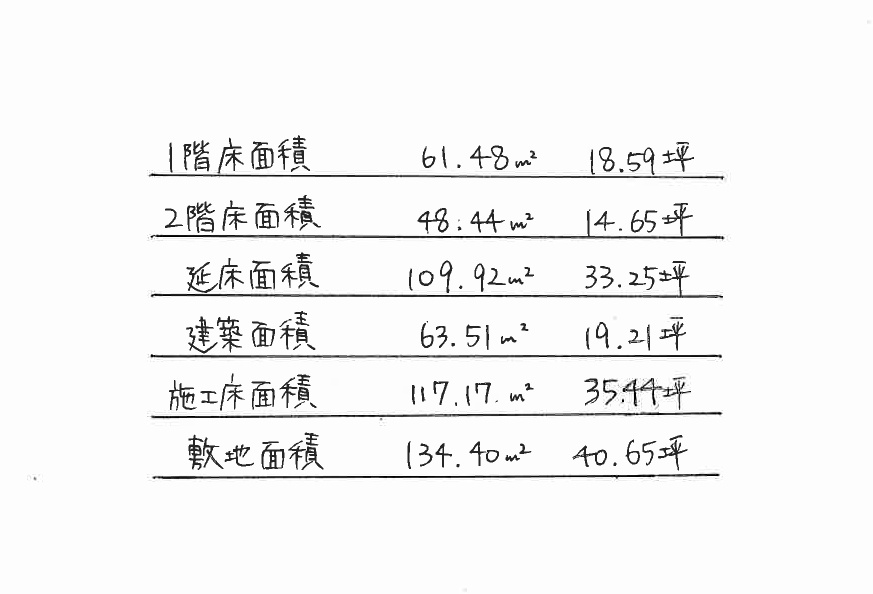 1階床面積 61.48m² 18.59坪
2階床面積 48.44m² 14.65坪
延床面積 109.92m² 33.25坪
建築面積 63.51m² 19.21坪
施工床面積 117.17m² 35.44坪
敷地面積 134.40m² 40.65坪